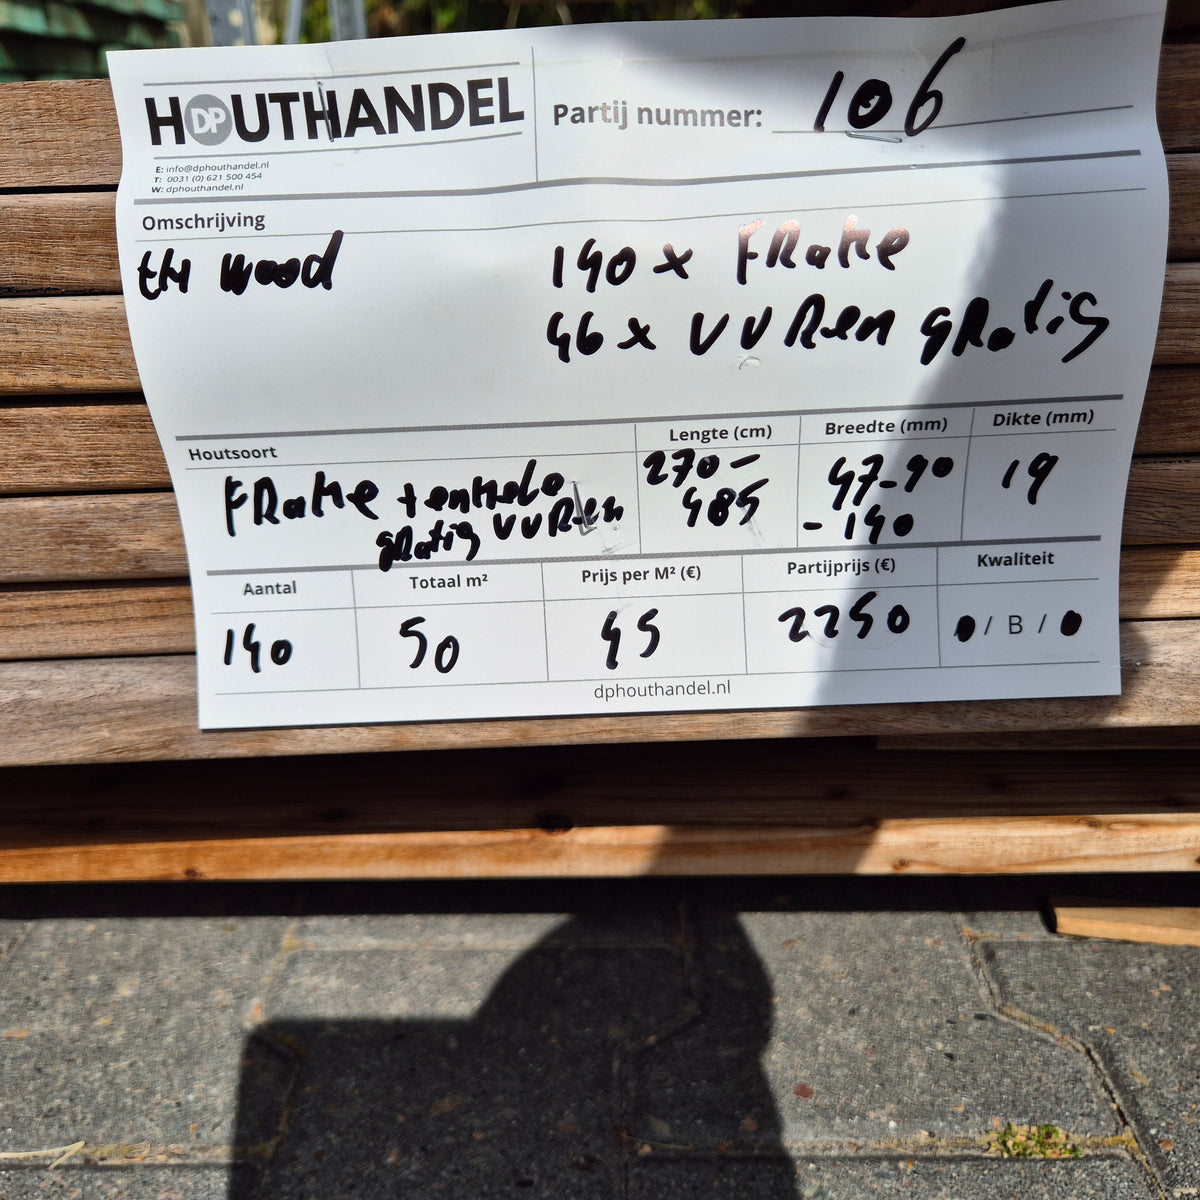 HOUTHANDEL
DP
E: info@dphouthandel.nl
T: 0031 (0) 621 500 454
W: dphouthandel.nl
Partij nummer: 106
Omschrijving
th wood
140 x FRake
46 x VUren gratis
Houtsoort
Lengte (cm)
Breedte (mm)
Dikte (mm)
FRake + enkele
gratis VUren
270-
485
47-90
-140
19
Aantal
Totaal m²
Prijs per M² (€)
Partijprijs (€)
Kwaliteit
140
50
45
2250
/ B /
dphouthandel.nl